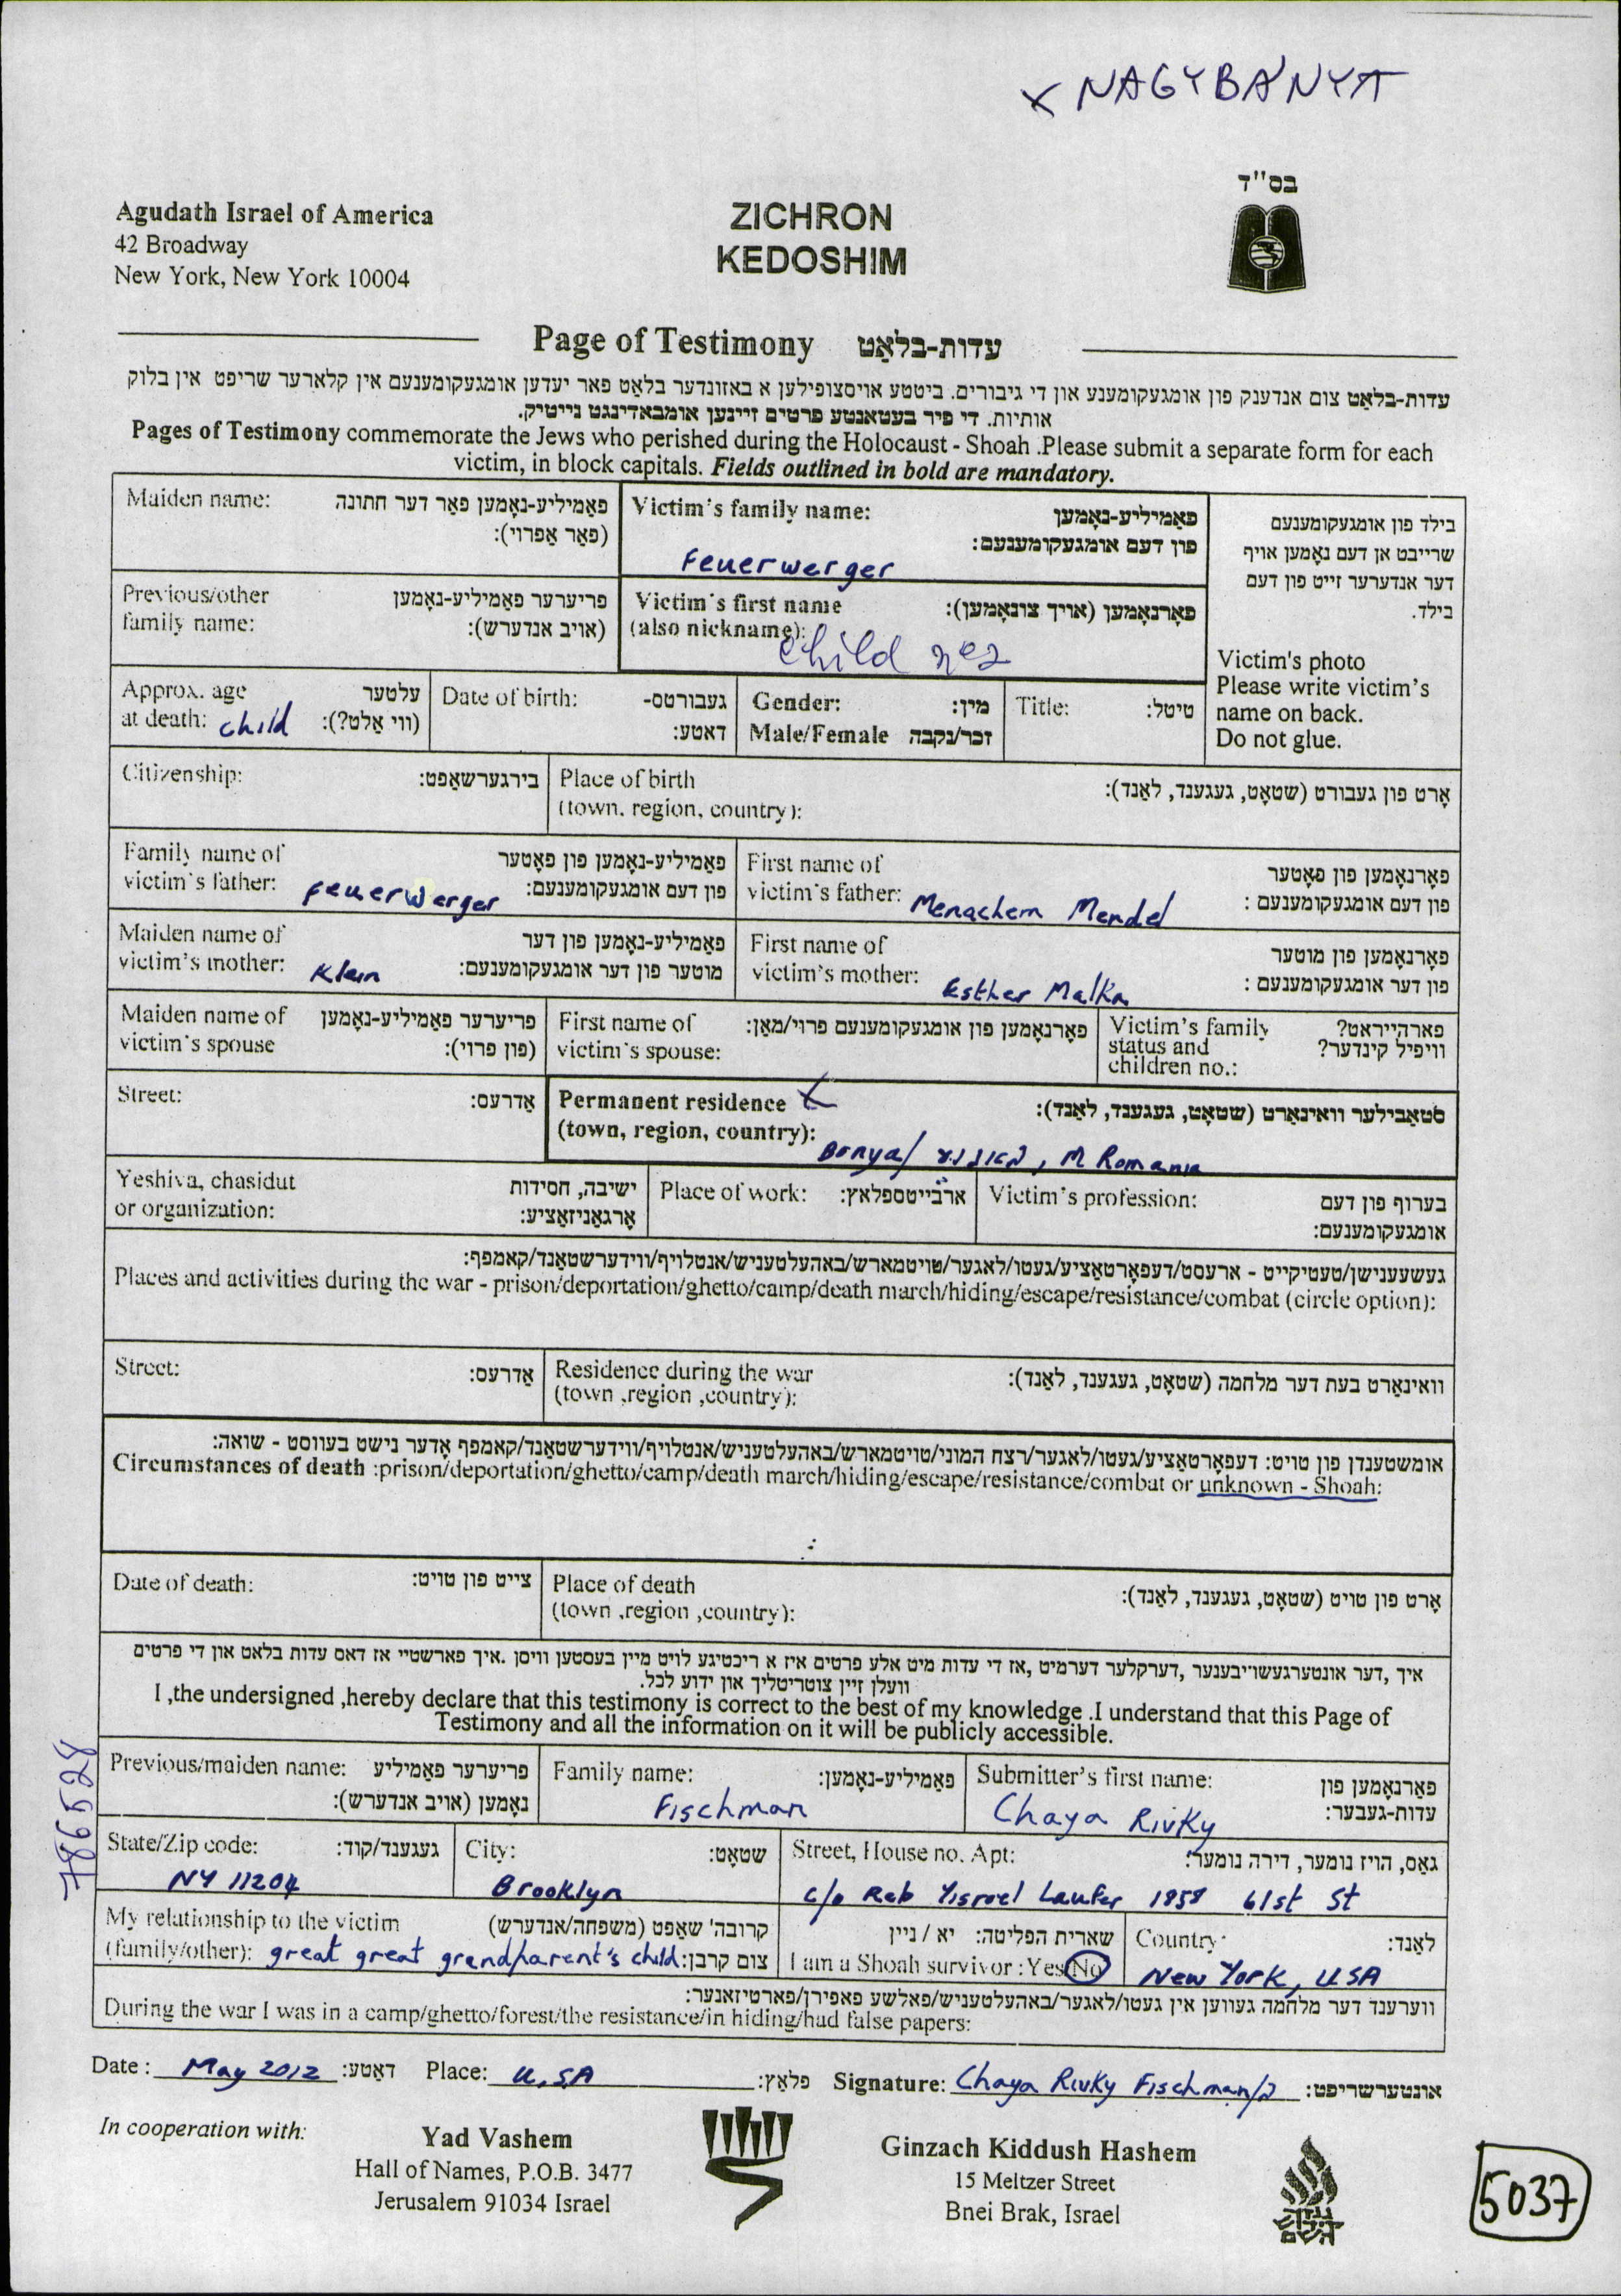 × NAGYBÁNYA
בס"ד
Agudath Israel of America
42 Broadway
New York, New York 10004
ZICHRON
KEDOSHIM
Page of Testimony עדות-בלאַט
עדות-בלאַט צום אנדענק פון אומגעקומענע און די גיבורים. ביטטע אויסצופילען א באזונדער בלאַט פאר יעדען אומגעקומענעם אין קלארער שריפט אין בלוק
אותיות. די פיר בעטאנטע פרטים זיינען אומבאדינגט נייטיק.
Pages of Testimony commemorate the Jews who perished during the Holocaust - Shoah .Please submit a separate form for each
victim, in block capitals. Fields outlined in bold are mandatory.
Maiden name: פאַמיליע-נאָמען פאַר דער חתונה
(פאַר אַפרוי):
Victim's family name: פאַמיליע-נאָמען
פון דעם אומגעקומענעם:
Feuerwerger
בילד פון אומגעקומענעם
שרייבט אן דעם נאָמען אויף
דער אנדערער זייט פון דעם
בילד.
Victim's photo
Please write victim's
name on back.
Do not glue.
Previous/other פריערער פאַמיליע-נאָמען
family name: (אויב אנדערש):
Victim's first name פאָרנאָמען (אויך צונאָמען):
(also nickname):
child ילד
Approx. age עלטער
at death: child (ווי אַלט?):
Date of birth: געבורטס-
דאטע:
Gender: מין:
Male/Female זכר/נקבה
Title: טיטל:
Citizenship: בירגערשאַפט:
Place of birth אָרט פון געבורט (שטאָט, געגענד, לאַנד):
(town, region, country):
Family name of פאַמיליע-נאָמען פון פאָטער
victim's father: Feuerwerger פון דעם אומגעקומענעם:
First name of פאָרנאָמען פון פאָטער
victim's father: Menachem Mendel פון דעם אומגעקומענעם :
Maiden name of פאַמיליע-נאָמען פון דער
victim's mother: Klein מוטער פון דער אומגעקומענעם:
First name of פאָרנאָמען פון מוטער
victim's mother: Esther Malka פון דער אומגעקומענעם :
Maiden name of פריערער פאַמיליע-נאָמען
victim's spouse (פון פרוי):
First name of פאָרנאָמען פון אומגעקומענעם פרוי/מאַן:
victim's spouse:
Victim's family פארהייראט?
status and וויפיל קינדער?
children no.:
Street: אַדרעס:
Permanent residence × סטאַבילער וואינאָרט (שטאָט, געגענד, לאַנד):
(town, region, country):
Banya/ באניע, Romania
Yeshiva, chasidut ישיבה, חסידות
or organization: אָרגאַניזאַציע:
Place of work: ארבייטספלאץ:
Victim's profession: בערוף פון דעם
אומגעקומענעם:
געשעענישן/טעטיקייט - ארעסט/דעפּאָרטאַציע/געטו/לאגער/טויטמארש/באהעלטעניש/אנטלויף/ווידערשטאַנד/קאמפף:
Places and activities during the war - prison/deportation/ghetto/camp/death march/hiding/escape/resistance/combat (circle option):
Street: אַדרעס:
Residence during the war וואינאָרט בעת דער מלחמה (שטאָט, געגענד, לאַנד):
(town ,region ,country):
אומשטענדן פון טויט: דעפּאָרטאַציע/געטו/לאגער/רצח המוני/טויטמארש/באהעלטעניש/אנטלויף/ווידערשטאַנד/קאמפף אָדער נישט בעווסט - שואה:
Circumstances of death :prison/deportation/ghetto/camp/death march/hiding/escape/resistance/combat or unknown - Shoah:
Date of death: צייט פון טויט:
Place of death אָרט פון טויט (שטאָט, געגענד, לאַנד):
(town ,region ,country):
איך ,דער אונטערגעשריבענער ,דערקלער דערמיט ,אז די עדות מיט אלע פרטים איז א ריכטיגע לויט מיין בעסטען וויסן .איך פארשטיי אז דאס עדות בלאט און די פרטים
וועלן זיין צוטריטליך און ידוע לכל.
I ,the undersigned ,hereby declare that this testimony is correct to the best of my knowledge .I understand that this Page of
Testimony and all the information on it will be publicly accessible.
Previous/maiden name: פריערער פאַמיליע
נאָמען (אויב אנדערש):
Family name: פאַמיליע-נאָמען:
Fischman
Submitter's first name: פאָרנאָמען פון
עדות-געבער:
Chaya Rivky
State/Zip code: געגענד/קוד:
NY 11204
City: שטאָט:
Brooklyn
Street, House no. Apt: גאַס, הויז נומער, דירה נומער:
c/o Reb Yisroel Laufer 1958 61st St
My relationship to the victim קרובה' שאַפט (משפחה/אנדערש)
(family/other): great great grandparent's child צום קרבן:
שארית הפליטה: יא / ניין
I am a Shoah survivor :Yes/No
Country: לאַנד:
New York, USA
ווערענד דער מלחמה געווען אין געטו/לאגער/באהעלטעניש/פאלשע פאפירן/פארטיזאנער:
During the war I was in a camp/ghetto/forest/the resistance/in hiding/had false papers:
Date : May 2012 דאַטע: Place: U.S.A פלאַץ: Signature: Chaya Rivky Fischman אונטערשריפט:
786528
In cooperation with:
Yad Vashem
Hall of Names, P.O.B. 3477
Jerusalem 91034 Israel
Ginzach Kiddush Hashem
15 Meltzer Street
Bnei Brak, Israel
גנזך
קידוש
השם
5037